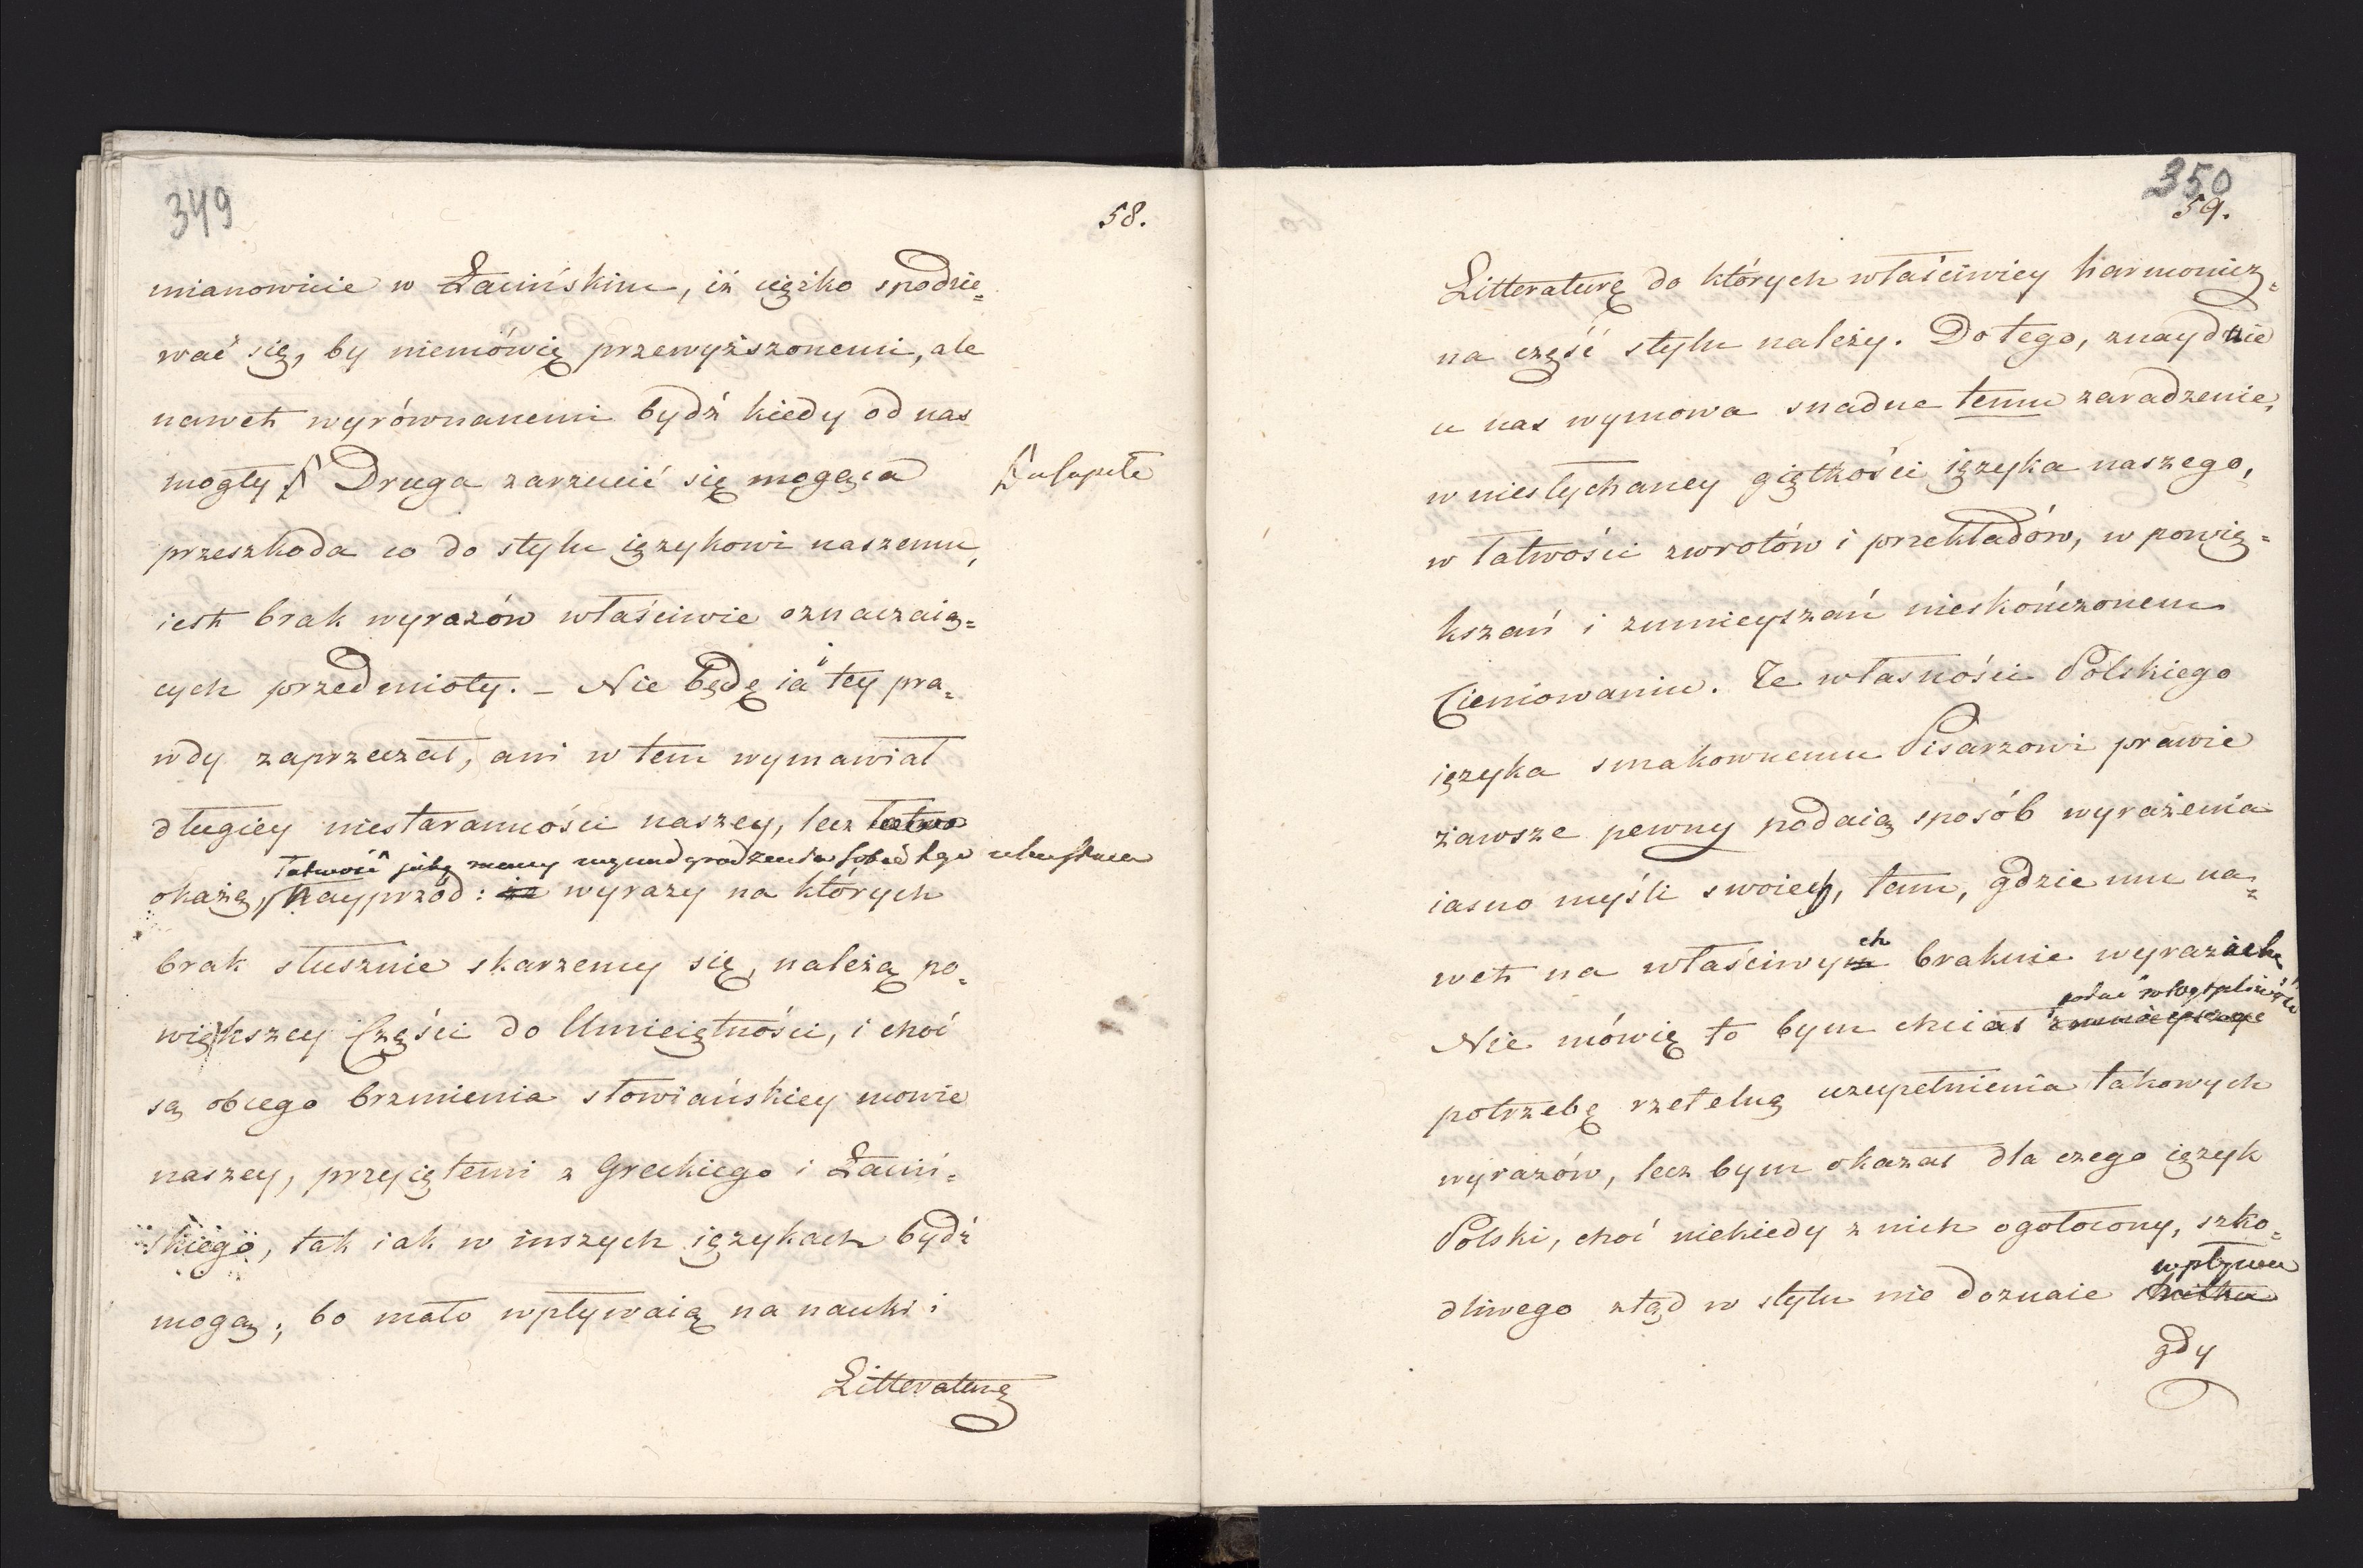 349
58.
mianowicie w Łacińskim, iż ciężko spodzie=
wać się, by niemówię przewyższonemi, ale
nawet wyrównanemi bydź kiedy od nas
mogły Druga zarzucić się mogąca
przeszkoda co do stylu ięzykowi naszemu,
iest brak wyrazów właściwie oznaczaią=
cych przedmioty. – Nie będę ia tey pra=
wdy zaprzeczał, ani w tem wymawiał
długiey niestaranności naszey, lecz łatwo
łatwość jaką mamy wynadgrodzenia sobie tego
okażę, Nayprzód: że wyrazy na których
brak słusznie skarżemy się, należą po=
większey Części do Umieiętności, i choć
są obcego brzmienia słowiańskiey mowie
naszey, przyiętemi z Greckiego i Łaciń=
skiego, tak iak w inszych ięzykach bydź
mogą; bo mało wpływaią na nauki i
Litteraturę
350
59.
Litteraturę do których właściwiey harmonicz=
na część stylu należy. Do tego, znaydzie
u nas wymowa snadne temu zaradzenie,
w niesłychaney giętkości ięzyka naszego,
w łatwości zwrotów i przekładów, w powię=
kszań i zmnieyszań nieskończonem
Cieniowaniu. Te własności Polskiego
ięzyka smakownemu Pisarzowi prawie
zawsze pewny podaią sposób wyrażenia
iasno myśli swoiey, tam, gdzie mu na=
wet na właściwych braknie wyrazach
podać w wątpliwość
Nie mówię to bym chciał
potrzebę rzetelną uzupełnienia takowych
wyrazów, lecz bym okazał dla czego ięzyk
Polski, choć niekiedy z nich ogołocony, szko=
wpływu
dliwego ztąd w stylu nie doznaie skutku
gdy